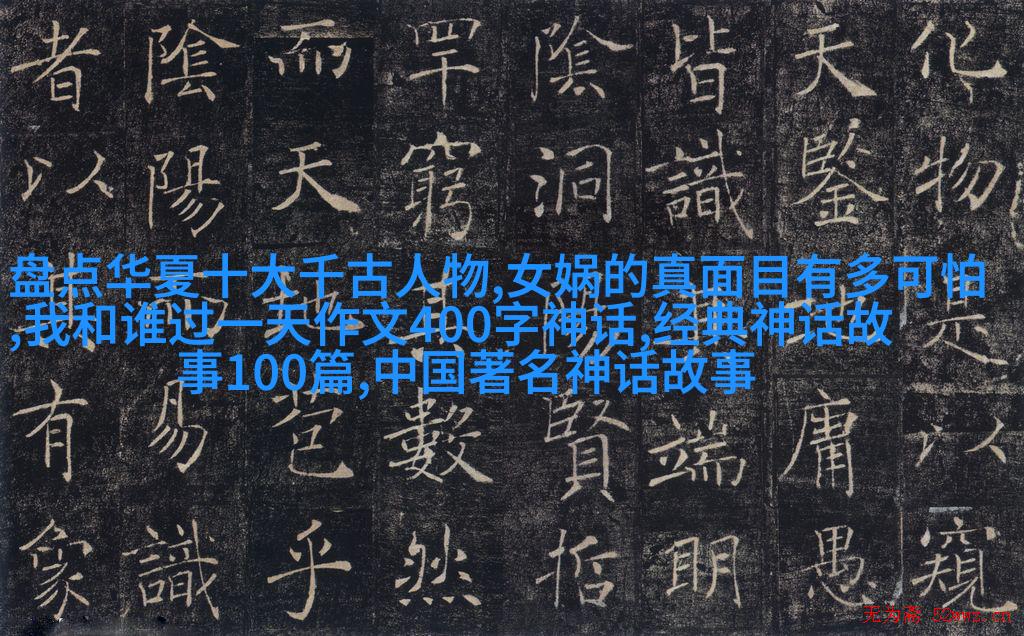 化物是以窺
天鑒地庸愚
皆識其端明
陰洞陽賢哲
罕窮其數然
而天地苞乎
陰陽而易識
者以其有象
盘点华夏十大千古人物,女娲的真面目有多可怕
,我和谁过一天作文400字神话,经典神话故
事100篇,中国著名神话故事
无为斋 52wwz.cn